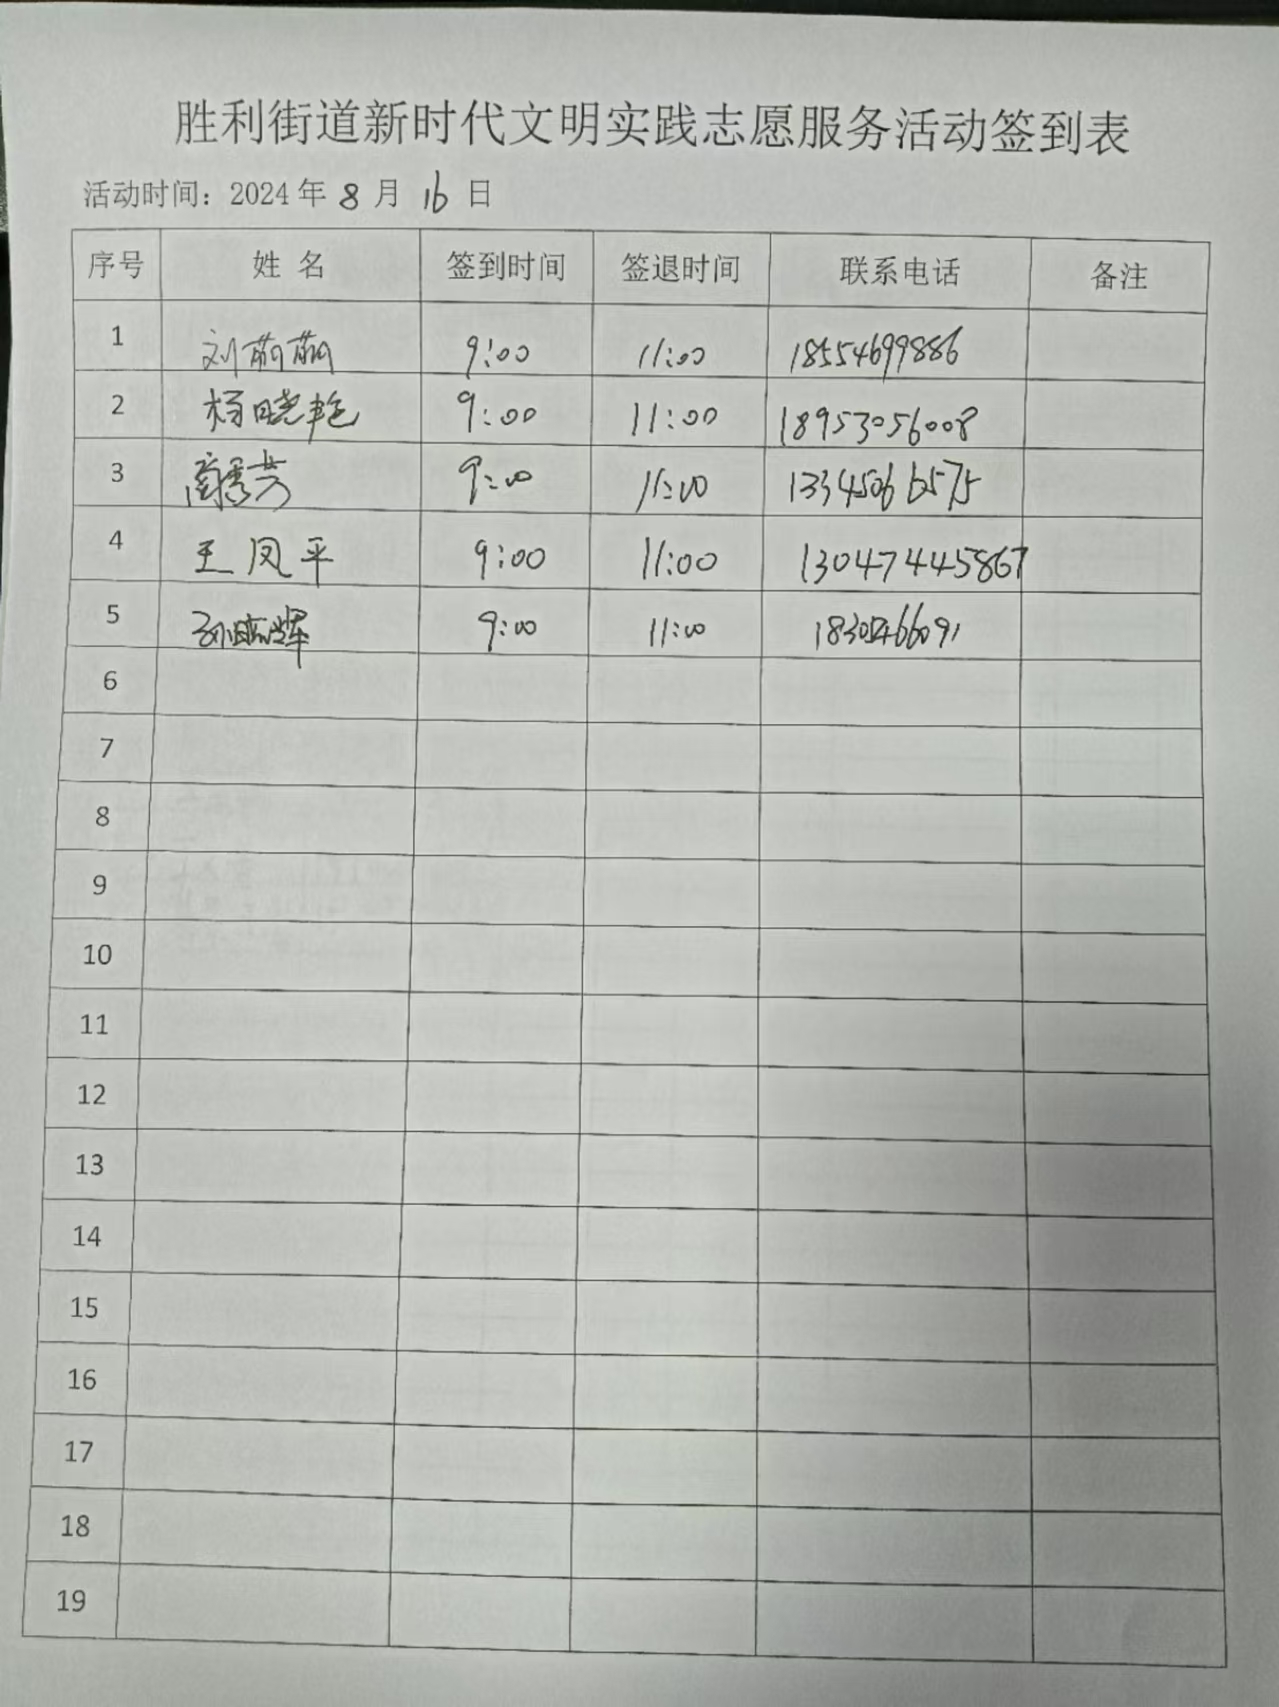 胜利街道新时代文明实践志愿服务活动签到表
活动时间：2024年 8 月 16 日
序号 姓 名 签到时间 签退时间 联系电话 备注
1 刘萌萌 9:00 11:00 18554699886
2 杨晓艳 9:00 11:00 18953056008
3 9:00 11:00
4 王凤平 9:00 11:00 130474445867
5 孙晓辉 9:00 11:00
6
7
8
9
10
11
12
13
14
15
16
17
18
19